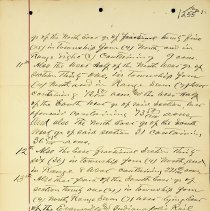 1255
of the North East qr. of fractional Twenty five
(25) in Township four (4) North and in
Range eight (8) Containing 9 acres
11th Also the West Half of the North West qr of
Section Thirty One, in Township four
(4) North and in Range Seven (7) West
Containing 72 acres. Also the West Half
of the South West qr of said Section 31
aforesaid Containing 73 acres,
and also the North East qr of the South
West qr of said section 31 containing
36 acres.
12 Also the West fractional Section Thirty
six (36) in Township four (4) North and
in Range 8 West containing acres
13 Also that part of the North West qr of
section Thirty one (31) in Township four
(4) North Range Seven (7) West lying East
of the Evansville and Indianapolis Rail